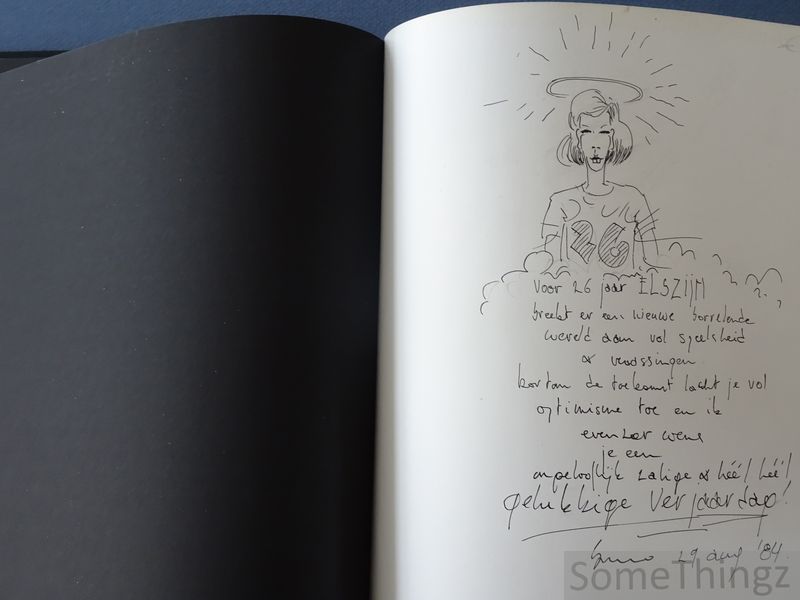 26
voor 26 jaar ELSZIJN
breekt er een nieuwe borrelende
wereld aan vol speelsheid
& verrassingen
kortom de toekomst lacht je vol
optimisme toe en ik
evenzeer wens
je een
ongelooflijk zalige & héél héél
gelukkige Verjaardag!
29 aug '84
SomeThingz